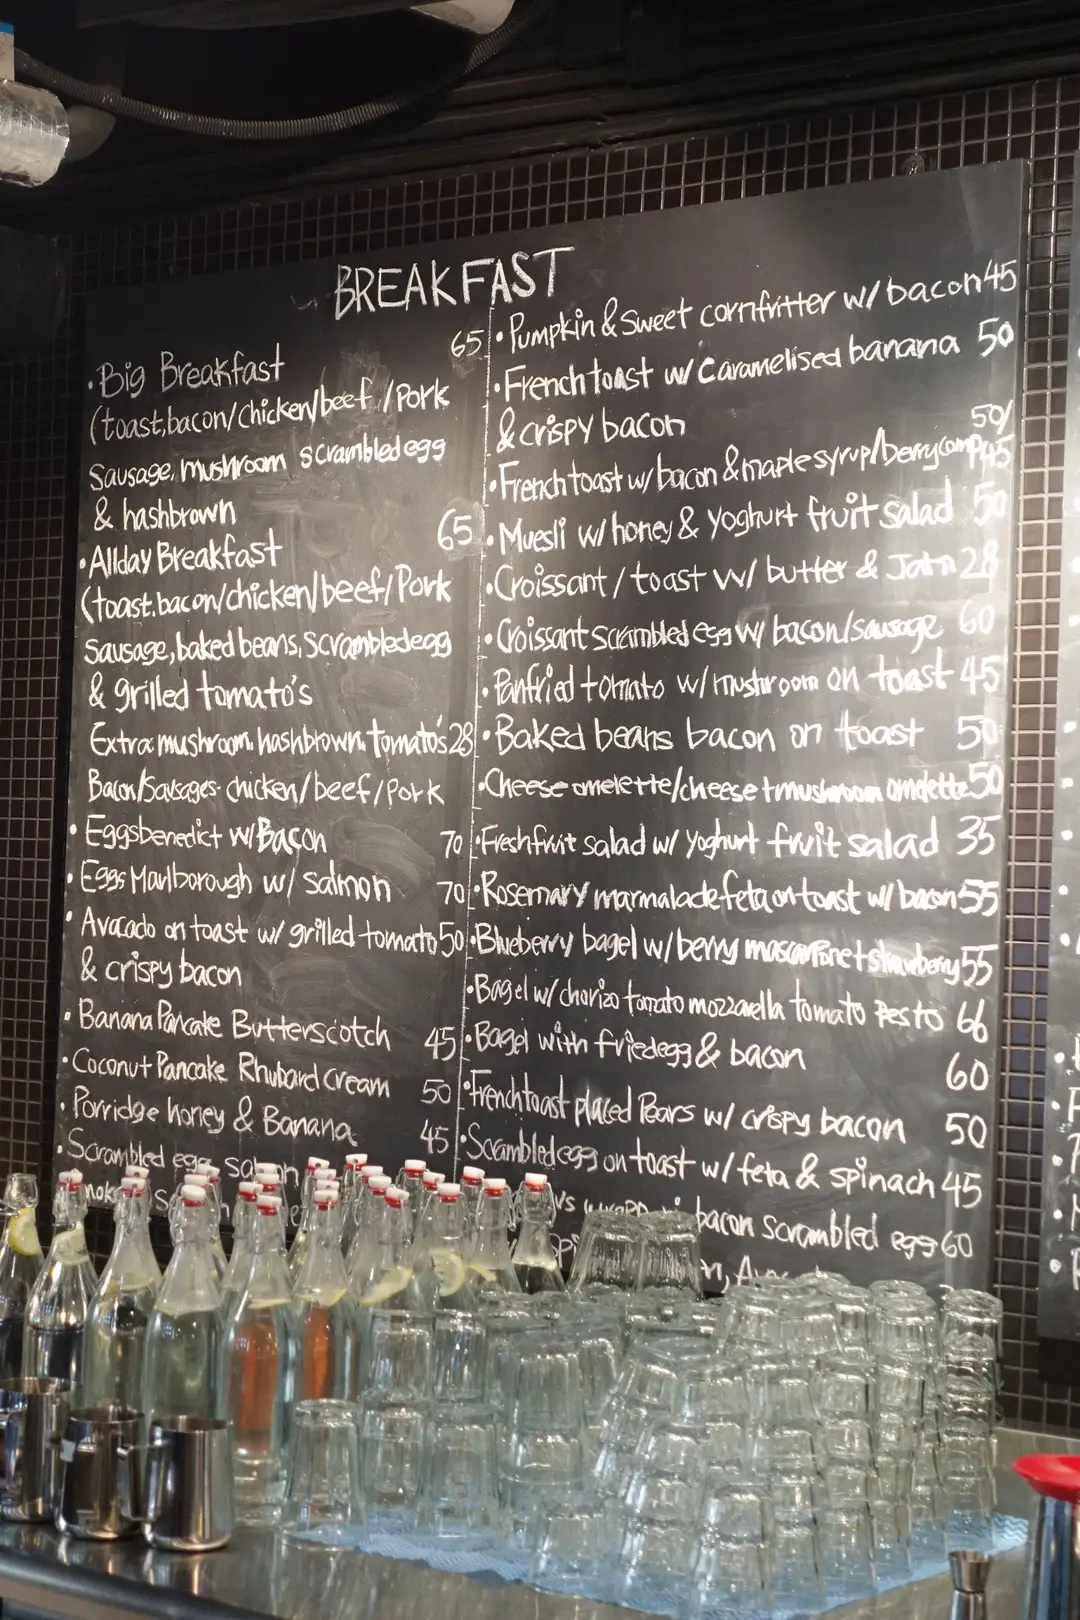 BREAKFAST
• Big Breakfast 65
(toast, bacon/chicken/beef/Pork
Sausage, mushroom scrambled egg
& hashbrown
• Allday Breakfast 65
(toast. bacon/chicken/beef/Pork
Sausage, baked beans, Scrambled egg
& grilled tomato's
Extra: mushroom, hashbrown, tomato's 28
Bacon/Sausages- chicken/beef/Pork
• Eggsbenedict w/Bacon 70
• Eggs Marlborough w/ salmon 70
• Avacado on toast w/ grilled tomato 50
& crispy bacon
• Banana Pancake Butterscotch 45
• Coconut Pancake Rhubard Cream 50
• Porridge honey & Banana 45
• Scrambled egg
• Pumpkin & Sweet cornfritter w/ bacon 45
• French toast w/ Caramelised banana 50
& crispy bacon 50/
• French toast w/ bacon & maple syrup/berry comp 45
• Muesli w/ honey & yoghurt fruit salad 50
• Croissant / toast w/ butter & Jam 28
• Croissant scrambled egg w/ bacon/sausage 60
• Panfried tomato w/ mushroom on toast 45
• Baked beans bacon on toast 50
• Cheese omelette/cheese + mushroom omelette 50
• Fresh fruit salad w/ yoghurt fruit salad 35
• Rosemary marmalade feta on toast w/ bacon 55
• Blueberry bagel w/ berry mascarpone + strawberry 55
• Bagel w/ chorizo tomato mozzarella tomato Pesto 66
• Bagel with fried egg & bacon 60
• French toast placed Pears w/ crispy bacon 50
• Scrambled egg on toast w/ feta & spinach 45
bacon scrambled egg 60